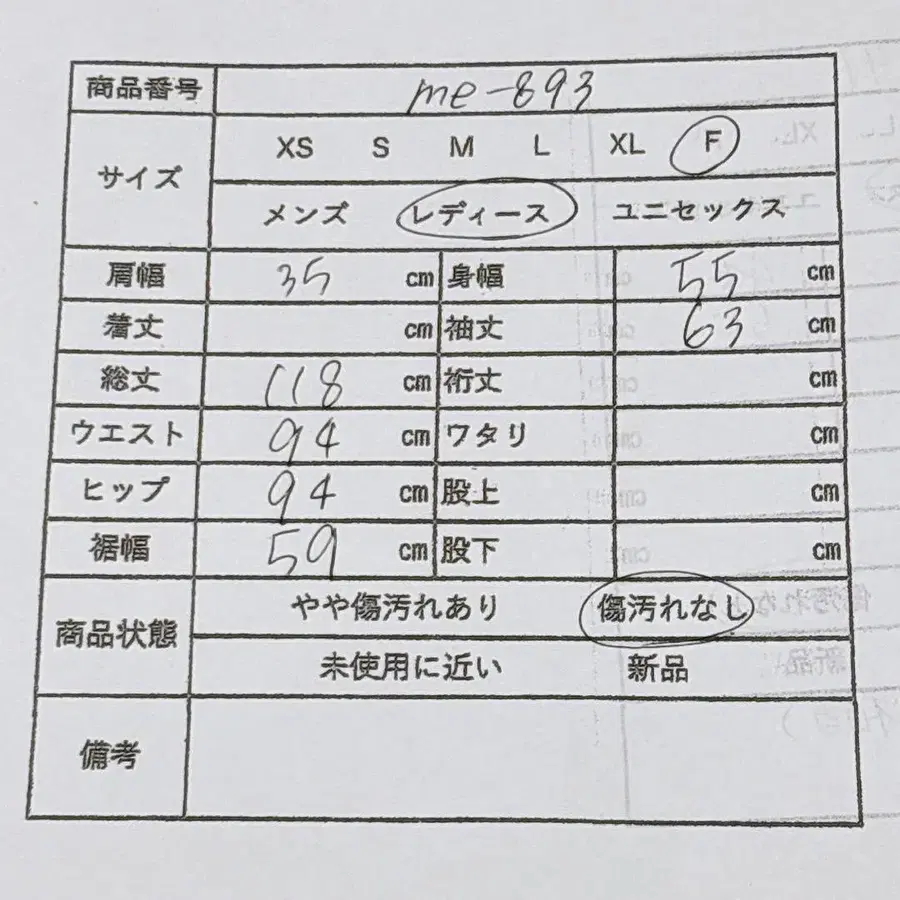 商品番号 me-893
サイズ XS S M L XL F
メンズ レディース ユニセックス
肩幅 35 cm 身幅 55 cm
着丈 cm 袖丈 63 cm
総丈 118 cm 裄丈 cm
ウエスト 94 cm ワタリ cm
ヒップ 94 cm 股上 cm
裾幅 59 cm 股下 cm
商品状態 やや傷汚れあり 傷汚れなし
未使用に近い 新品
備考